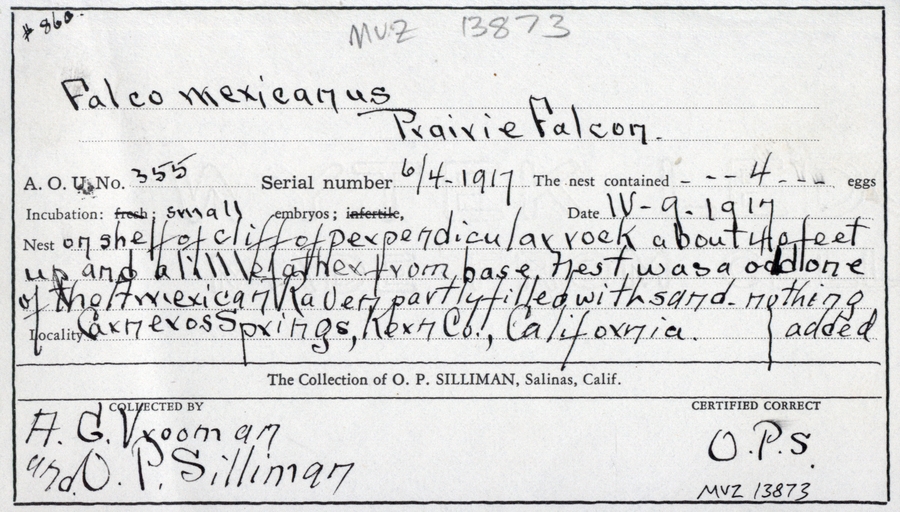 # 860.
MVZ 13873
Falco mexicanus
Prairie Falcon.
A. O. U. No. 355 Serial number 6/4-1917 The nest contained - - - 4 - - - eggs
Incubation: fresh; small embryos; infertile, Date IV-9-1917
Nest on shelf of cliff of perpendicular rock about 40 feet
up and a little father from base, nest was a old one
of the American Raven partly filled with sand - nothing
Locality Carneros Springs, Kern Co., California. added
The Collection of O. P. SILLIMAN, Salinas, Calif.
COLLECTED BY CERTIFIED CORRECT
A. G. Vrooman O.P.S.
and O. P. Silliman
MVZ 13873